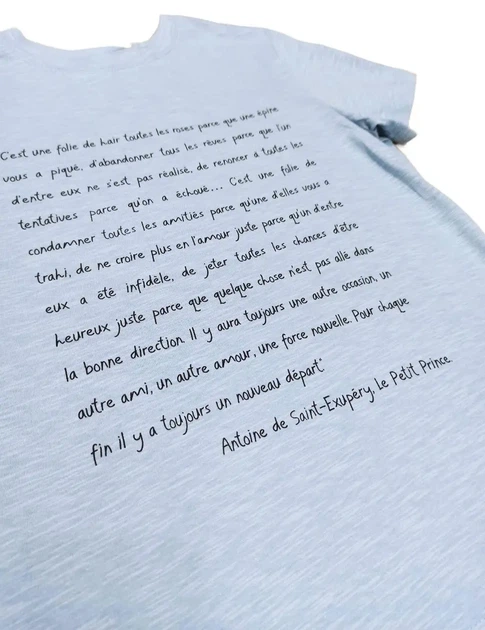 C'est une folie de haïr toutes les roses parce que une épine
vous a piqué, d'abandonner tous les rêves parce que l'un
d'entre eux ne s'est pas réalisé, de renoncer à toutes les
tentatives parce qu'on a échoué... C'est une folie de
condamner toutes les amitiés parce qu'une d'elles vous a
trahi, de ne croire plus en l'amour juste parce qu'un d'entre
eux a été infidèle, de jeter toutes les chances d'être
heureux juste parce que quelque chose n'est pas allé dans
la bonne direction. Il y aura toujours une autre occasion, un
autre ami, un autre amour, une force nouvelle. Pour chaque
fin il y a toujours un nouveau départ"
Antoine de Saint-Exupéry, Le Petit Prince